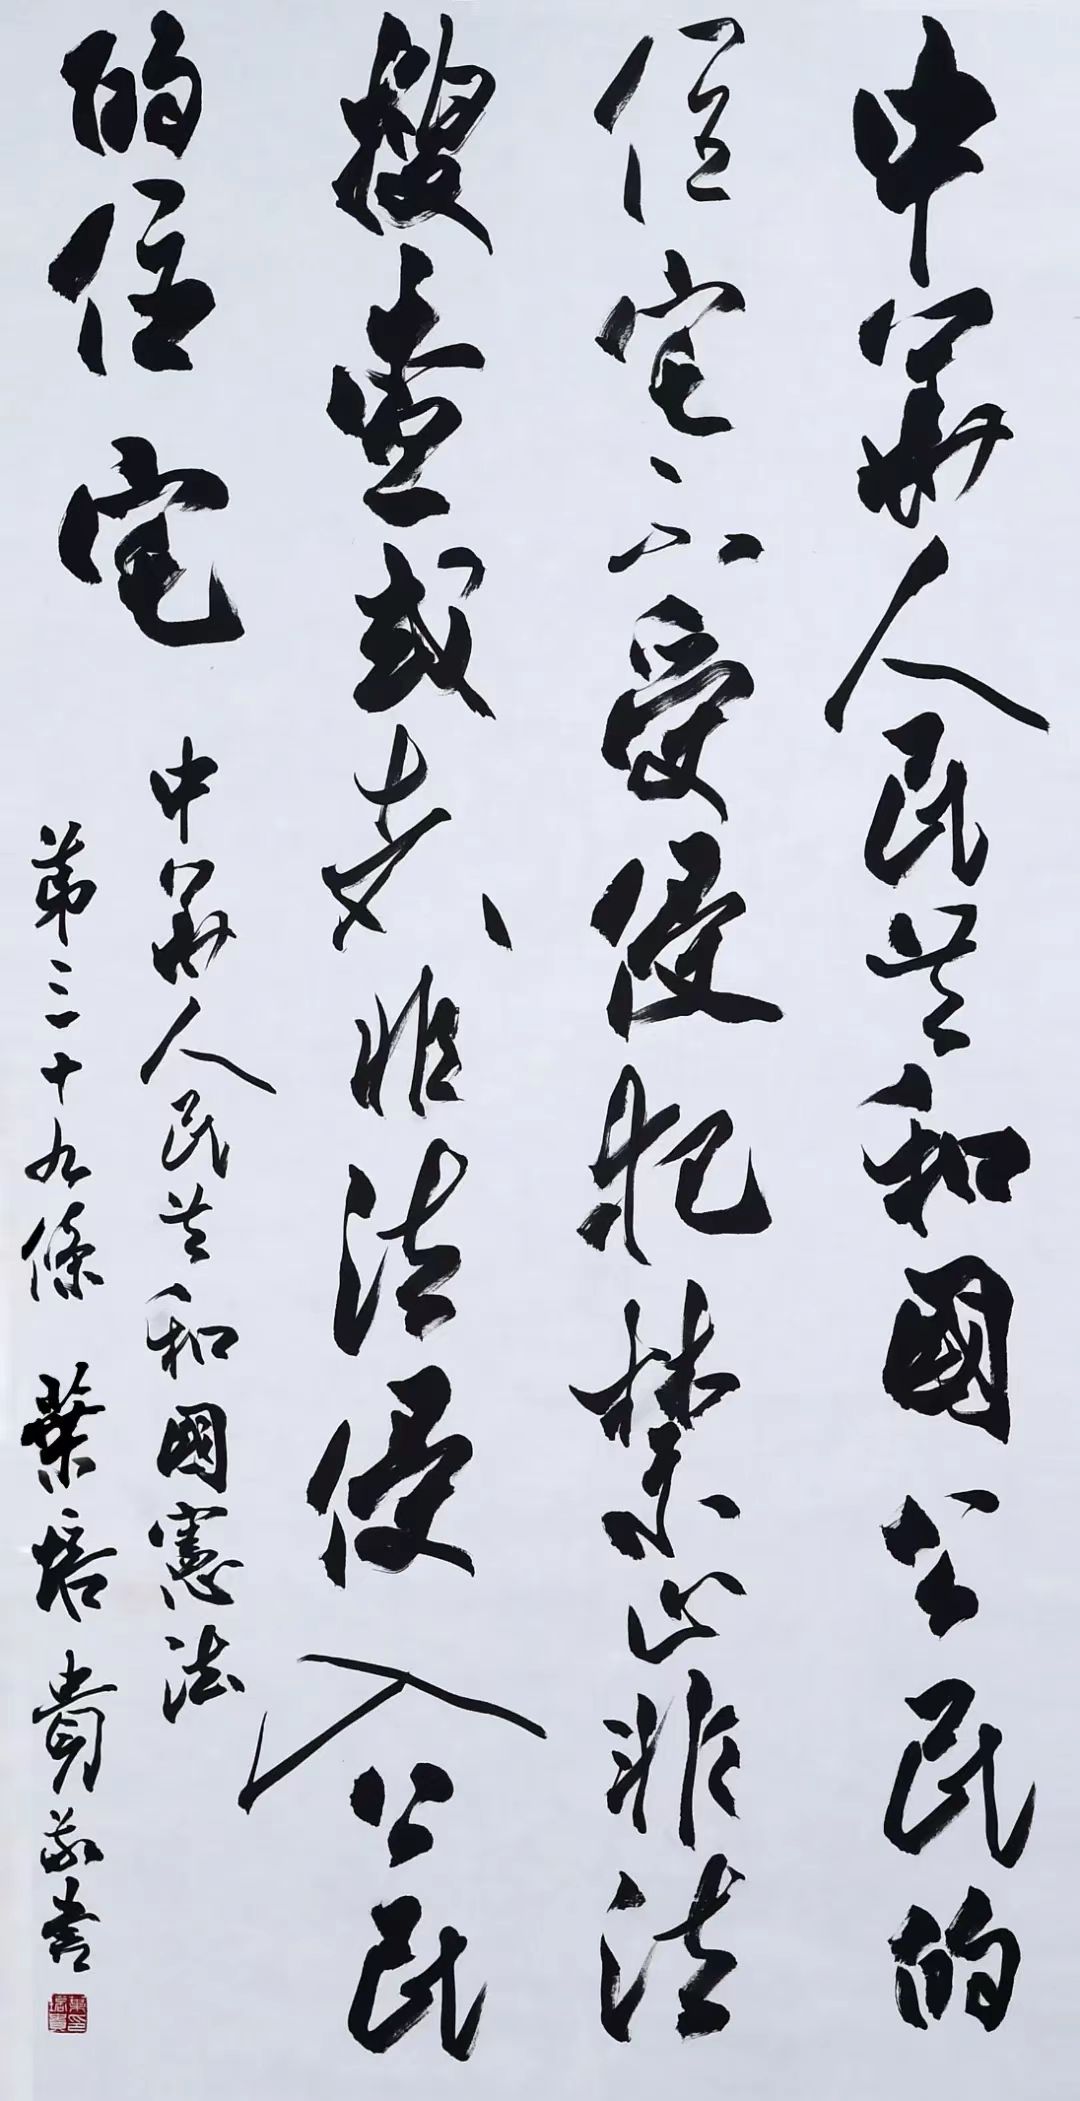 中華人民共和國公民的
住宅不受侵犯禁止非法
搜查或者非法侵入公民
的住宅
中華人民共和國憲法
第三十九條 葉培貴敬書